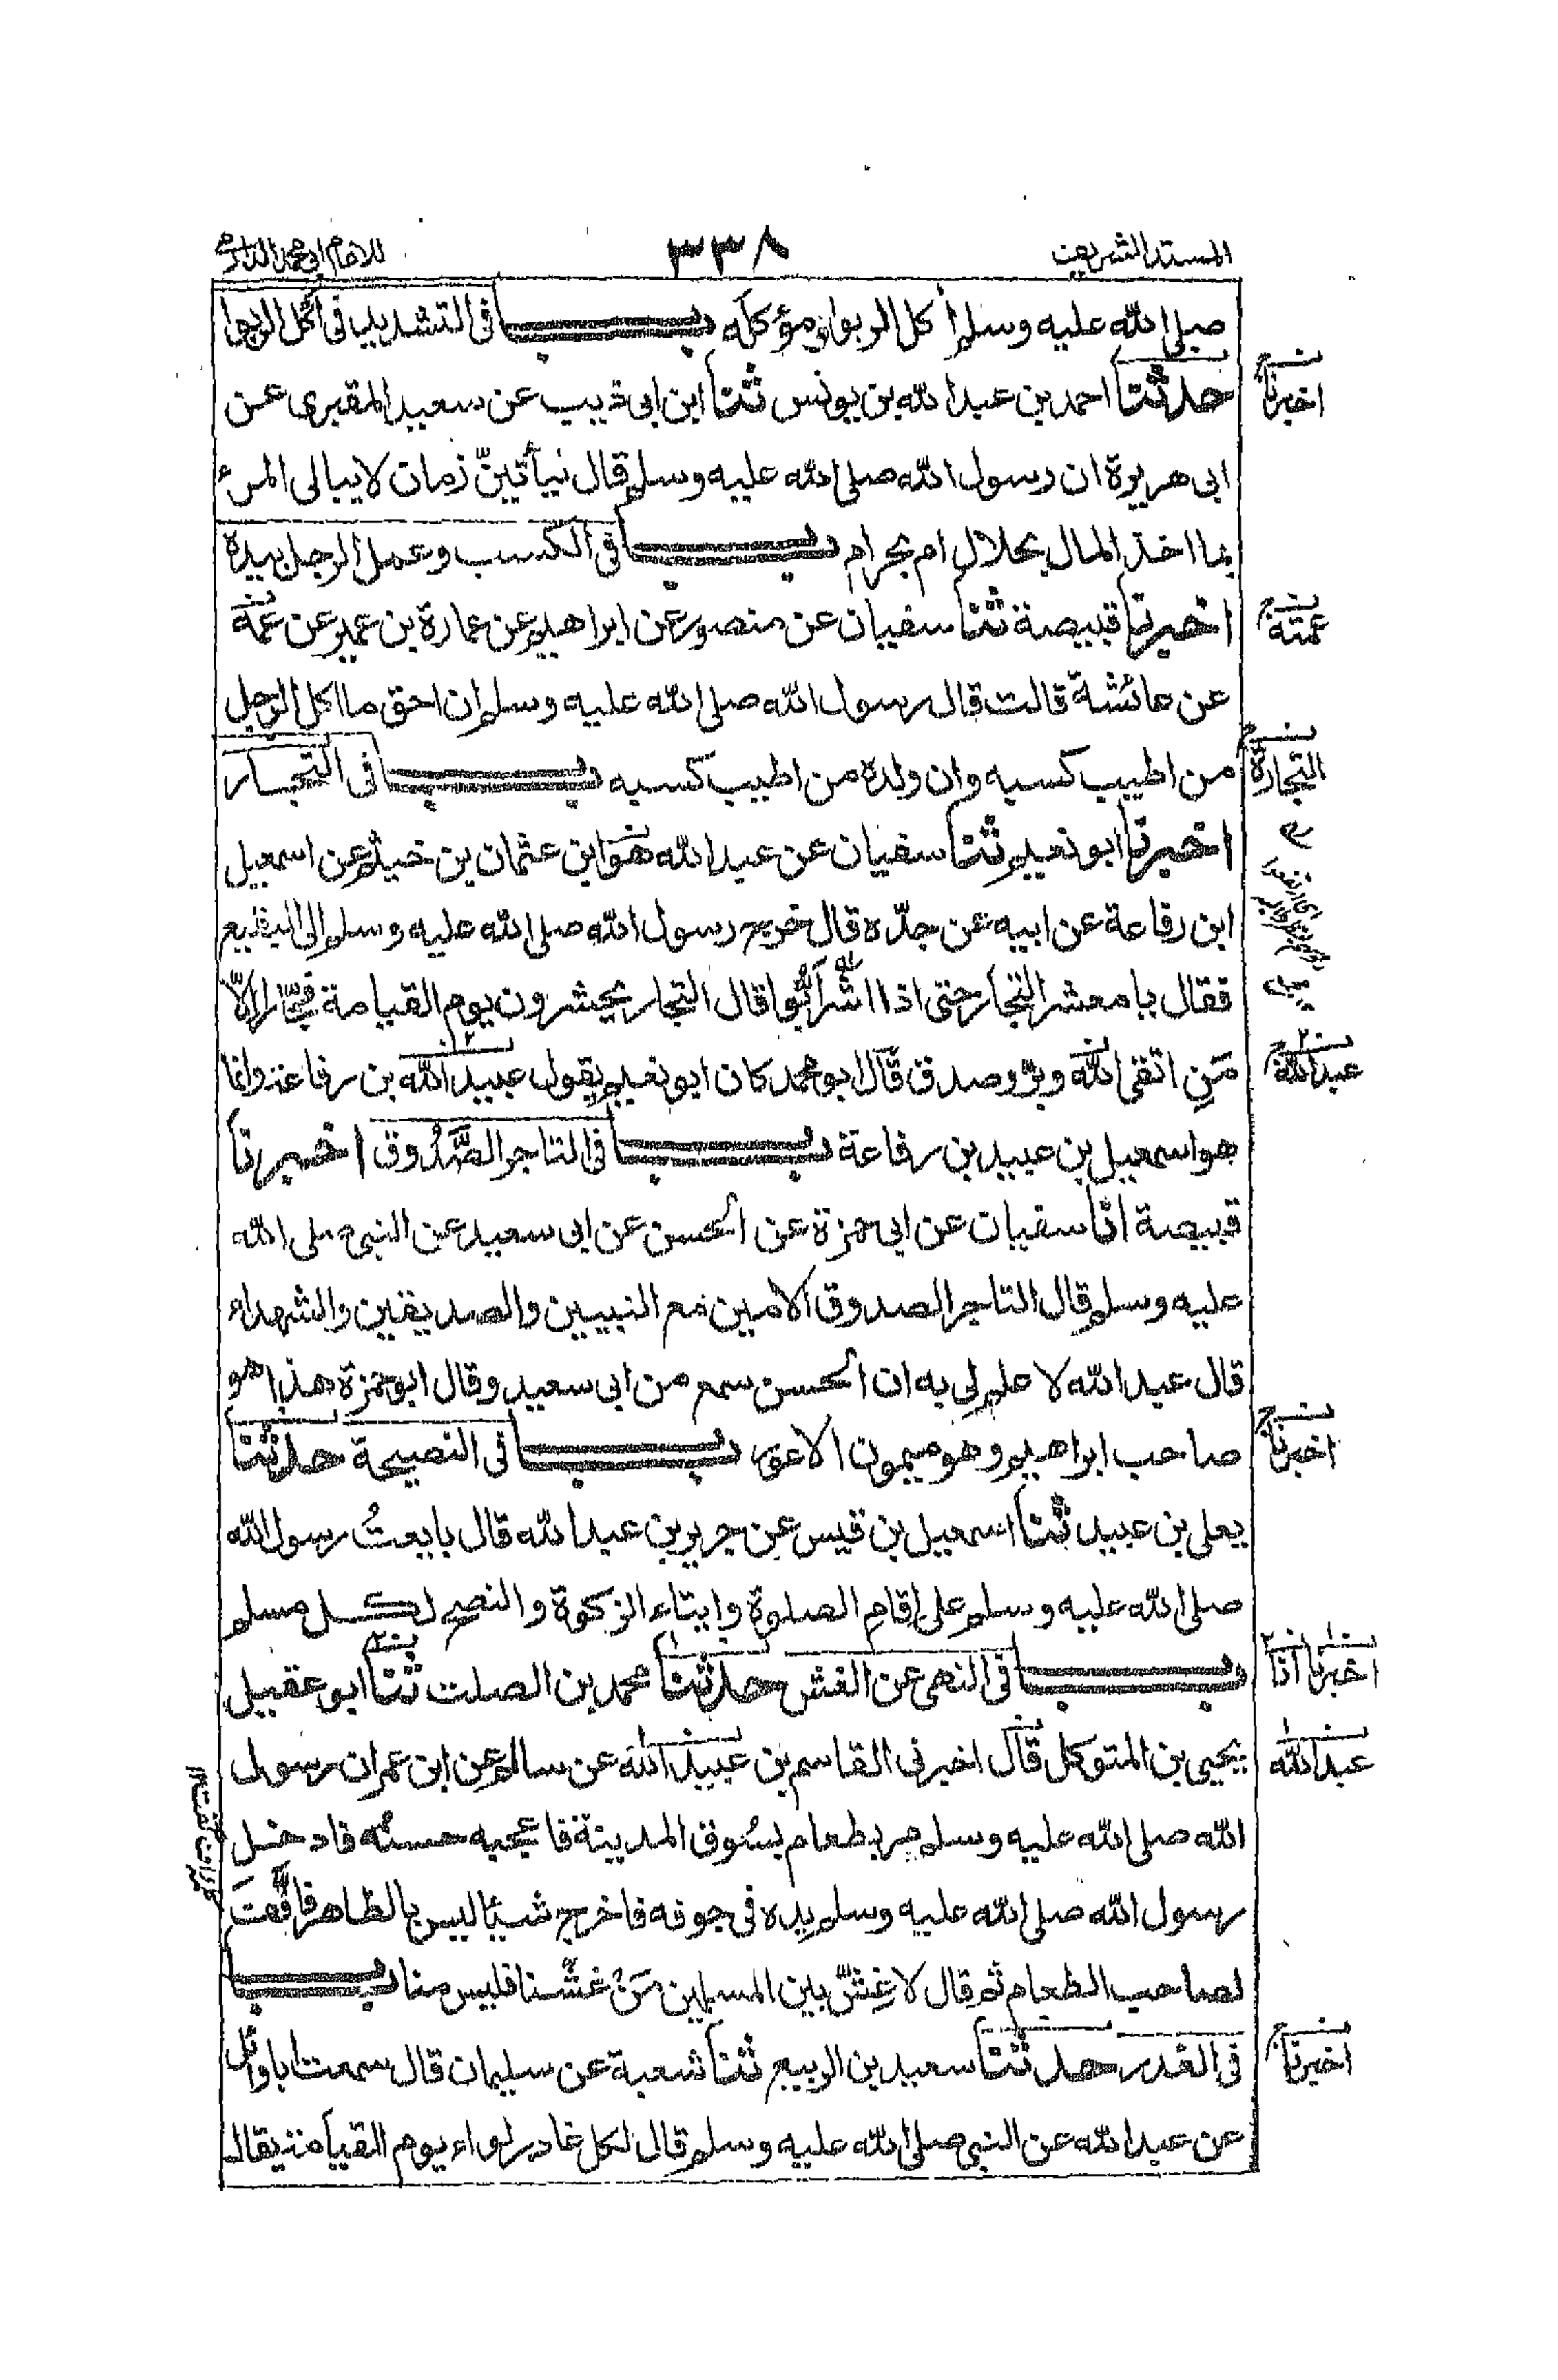 المسند الشريف
٣٣٨
للامام ابي محمد الدارمي
صلى الله عليه وسلم أكل الربوا ومؤكله باب في التشديد في اكل الربوا
حدثنا احمد بن عبد الله بن يونس ثنا ابن ابي ذيب عن سعيد المقبري عن
اخبرنا
ابي هريرة ان رسول الله صلى الله عليه وسلم قال ليأتينّ زمان لا يبالى المرء
بما اخذ المال بحلال ام بحرام باب في الكسب وعمل الرجل بيده
اخبرنا قبيصة ثنا سفيان عن منصور عن ابراهيم عن عمارة بن عمير عن عمة
عمته
عن عائشة قالت قال رسول الله صلى الله عليه وسلم ان احق ما اكل الرجل
من اطيب كسبه وان ولده من اطيب كسبه باب في التجار
التجارة
اخبرنا ابو نعيم ثنا سفيان عن عبد الله هو ابن عثمان بن خيثم عن اسمعيل
ابن رفاعة عن ابيه عن جدّه قال خرج رسول الله صلى الله عليه وسلم الى البقيع
فقال يا معشر التجار حتى اذا اشرأبّوا قال التجار يحشرون يوم القيامة فجّارا الّا
مَنِ اتقى الله وبرّ وصدق قال ابو محمد كان ابو نعيم يقول عبيد الله بن رفاعة وانما
عبد الله
هو اسمعيل بن عبيد بن رفاعة باب في التاجر الصَّدُوق اخبرنا
قبيصة انا سفيان عن ابي حمزة عن الحسن عن ابي سعيد عن النبي صلى الله
عليه وسلم قال التاجر الصدوق الامين مع النبيين والصديقين والشهداء
قال عبد الله لا علم لي به ان الحسن سمع من ابي سعيد وقال ابو حمزة هذا هو
صاحب ابراهيم وهو ميمون الاعور باب في النصيحة حدثنا
اخبرنا
يعلى بن عبيد ثنا اسمعيل بن قيس عن جرير بن عبد الله قال بايعتُ رسول الله
صلى الله عليه وسلم على اقام الصلوة وايتاء الزكوة والنصح لكل مسلم
باب في النهي عن الغش حدثنا محمد بن الصلت ثنا ابو عقيل
اخبرنا انا
يحيى بن المتوكل قال اخبرني القاسم بن عبيد الله عن سالم عن ابن عمر ان رسول
عبد الله
الله صلى الله عليه وسلم مر بطعام بسُوق المدينة فاعجبه حسنُه فادخل
رسول الله صلى الله عليه وسلم يده في جوفه فاخرج شيئا ليس بالظاهر فافَّفَ
لصاحب الطعام ثم قال لا غِشَّ بين المسلمين مَنْ غشّنا فليس منا باب
في الغدر حدثنا سعيد بن الربيع ثنا شعبة عن سليمان قال سمعت ابا وائل
اخبرنا
عن عبد الله عن النبي صلى الله عليه وسلم قال لكل غادر لواء يوم القيامة يقال